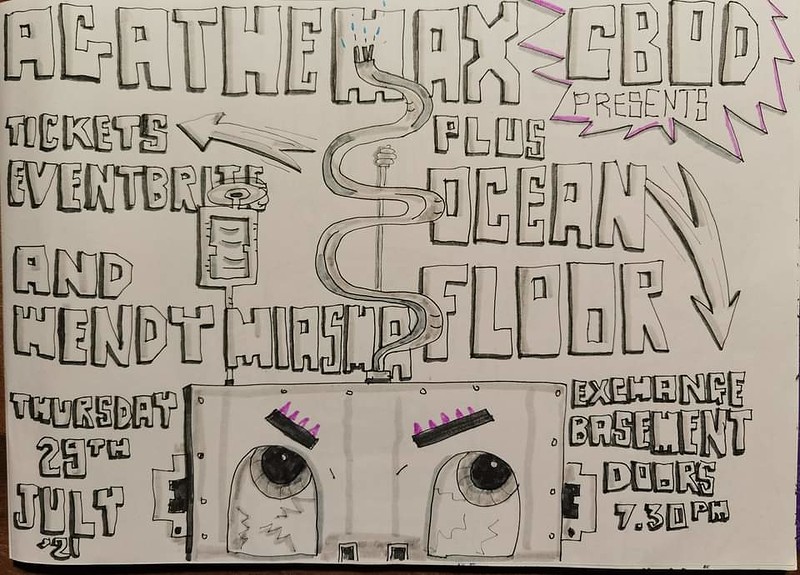 AGATHE MAX
GBOD
PRESENTS
TICKETS
EVENTBRITE
PLUS
OCEAN
FLOOR
AND
WENDY MIASMA
THURSDAY
29TH
JULY
'21
EXCHANGE
BASEMENT
DOORS
7.30PM